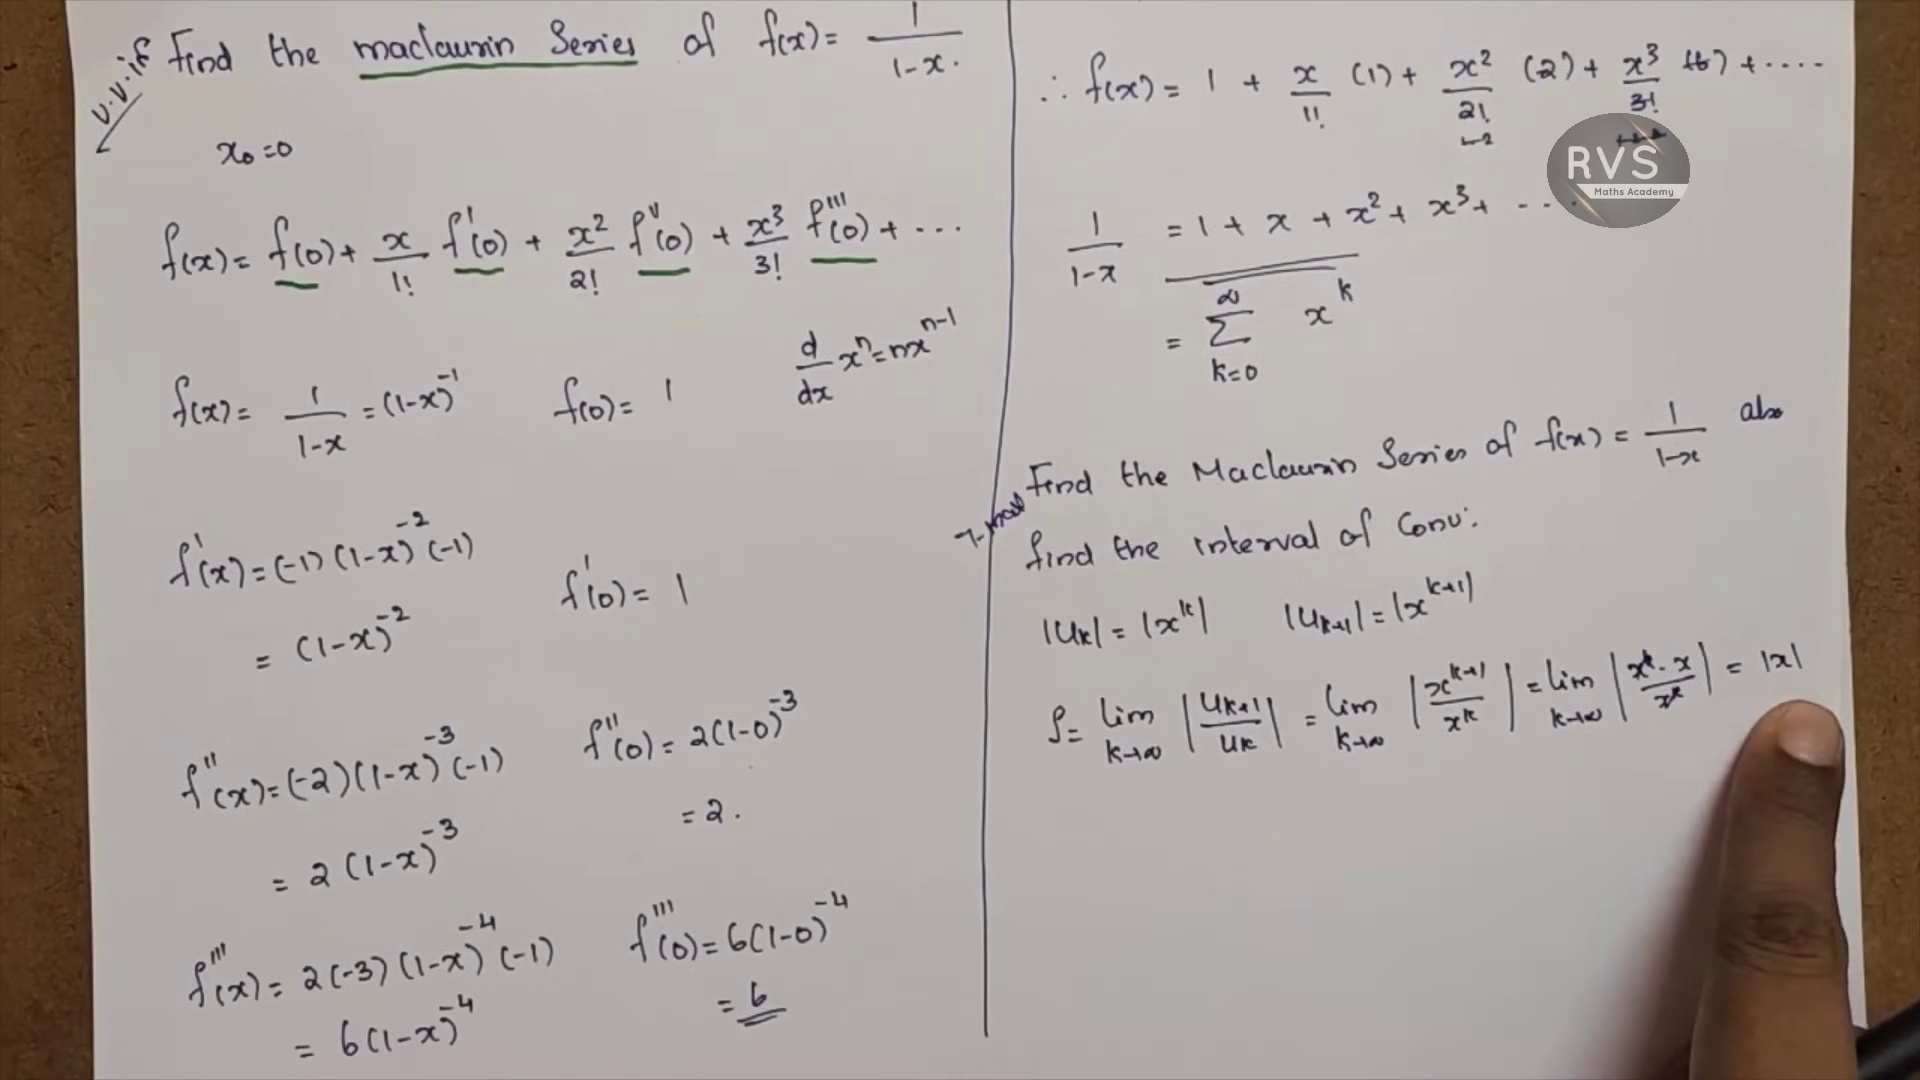 v.v.if Find the maclaurin Series of f(x) = 1/1-x.
x₀=0
f(x) = f(0) + x/1! f'(0) + x²/2! f''(0) + x³/3! f'''(0) + ...
d/dx xⁿ = nxⁿ⁻¹
f(x) = 1/1-x = (1-x)⁻¹ f(0) = 1
f'(x) = (-1)(1-x)⁻²(-1)
= (1-x)⁻² f'(0) = 1
f''(x) = (-2)(1-x)⁻³(-1) f''(0) = 2(1-0)⁻³
= 2(1-x)⁻³ = 2.
f'''(x) = 2(-3)(1-x)⁻⁴(-1) f'''(0) = 6(1-0)⁻⁴
= 6(1-x)⁻⁴ = 6
∴ f(x) = 1 + x/1! (1) + x²/2! (2) + x³/3! (6) + ....
RVS
Maths Academy
1/1-x = 1 + x + x² + x³ + ...
= ∞ Σ k=0 xᵏ
Find the Maclaurin Series of f(x) = 1/1-x also
find the interval of Conv.
|Uk| = |xᵏ| |Uk+1| = |xᵏ⁺¹|
ρ = lim k→∞ |Uk+1/Uk| = lim k→∞ |xᵏ⁺¹/xᵏ| = lim k→∞ |xᵏ·x/xᵏ| = |x|